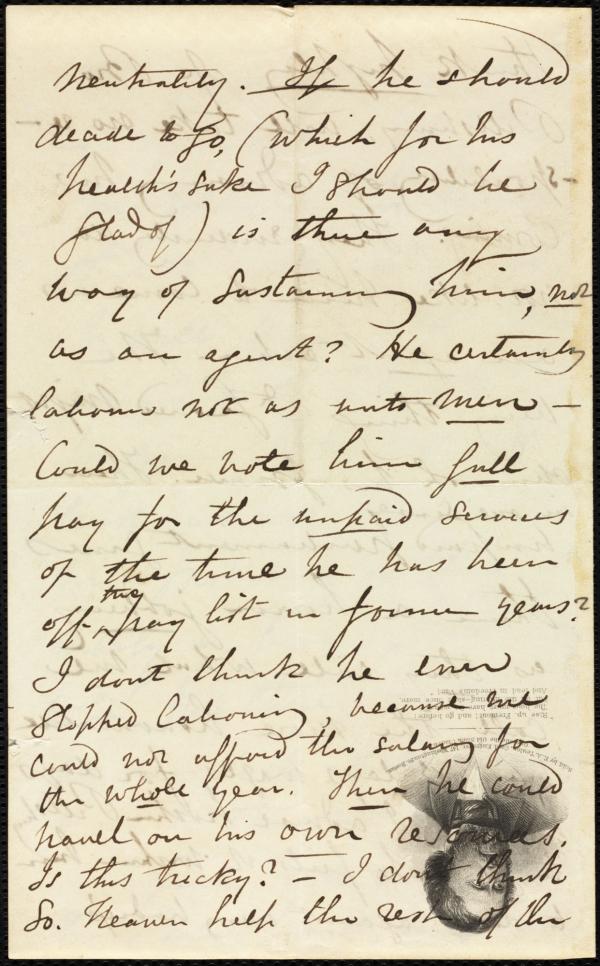 neutrality. If he should
decide to go, (which for his
health's sake I should be
glad of) is there any
way of sustaining him, not
as an agent? He certainly
labours not as unto men —
Could we vote him full
pay for the unpaid services
of the time he has been
off the pay list in former years?
I dont think he ever
stopped labouring, because we
could not afford the salary for
the whole year. Then he could
travel on his own resources.
Is this tricky? — I don't think
so. Heaven help the rest of the
Rise up, Fremont! and go before!